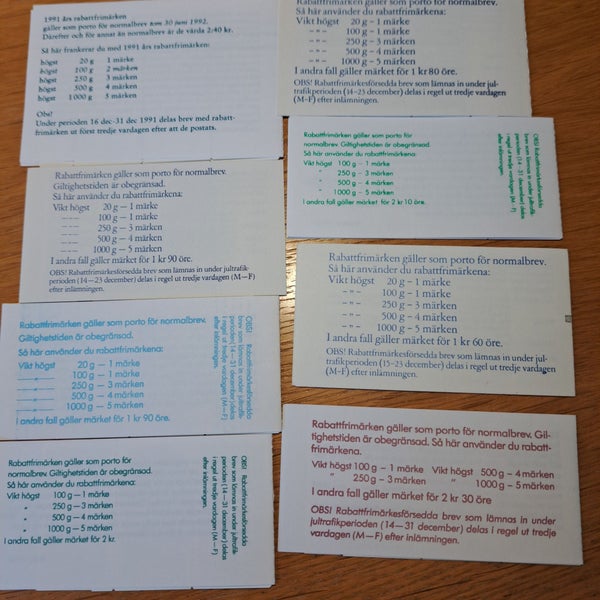 1991 års rabattfrimärken
gäller som porto för normalbrev tom 30 juni 1992.
Därefter och för annat än normalbrev är de värda 2:40 kr.
Så här frankerar du med 1991 års rabattfrimärken:
högst 20 g 1 märke
högst 100 g 2 märken
högst 250 g 3 märken
högst 500 g 4 märken
högst 1000 g 5 märken
Obs!
Under perioden 16 dec-31 dec 1991 delas brev med rabatt-
frimärken ut först tredje vardagen efter att de postats.
Så här använder du rabattfrimärkena:
Vikt högst 20 g – 1 märke
–"– 100 g – 2 märken
–"– 250 g – 3 märken
–"– 500 g – 4 märken
–"– 1000 g – 5 märken
I andra fall gäller märket för 1 kr 80 öre.
OBS! Rabattfrimärkesförsedda brev som lämnas in under jul-
trafikperioden (14–23 december) delas i regel ut tredje vardagen
(M–F) efter inlämningen.
Rabattfrimärken gäller som porto för
normalbrev. Giltighetstiden är obegränsad.
Så här använder du rabattfrimärkena:
Vikt högst 100 g – 1 märke
" 250 g – 3 märken
" 500 g – 4 märken
" 1000 g – 5 märken
I andra fall gäller märket för 2 kr 10 öre.
OBS! Rabattfrimärkesförsedda
brev som lämnas in under
jultrafikperioden (14–31 december) delas
i regel ut tredje vardagen (M–F)
efter inlämningen.
Rabattfrimärken gäller som porto för normalbrev.
Giltighetstiden är obegränsad.
Så här använder du rabattfrimärkena:
Vikt högst 20 g – 1 märke
–"– 100 g – 1 märke
–"– 250 g – 3 märken
–"– 500 g – 4 märken
–"– 1000 g – 5 märken
I andra fall gäller märket för 1 kr 90 öre.
OBS! Rabattfrimärkesförsedda brev som lämnas in under jultrafik-
perioden (14–23 december) delas i regel ut tredje vardagen (M–F)
efter inlämningen.
Rabattfrimärken gäller som porto för normalbrev.
Så här använder du rabattfrimärkena:
Vikt högst 20 g – 1 märke
–"– 100 g – 1 märke
–"– 250 g – 3 märken
–"– 500 g – 4 märken
–"– 1000 g – 5 märken
I andra fall gäller märket för 1 kr 60 öre.
OBS! Rabattfrimärkesförsedda brev som lämnas in under jul-
trafikperioden (15–23 december) delas i regel ut tredje vardagen
(M-F) efter inlämningen.
Rabattfrimärken gäller som porto för normalbrev.
Giltighetstiden är obegränsad.
Så här använder du rabattfrimärkena:
Vikt högst 20 g – 1 märke
–"– 100 g – 1 märke
–"– 250 g – 3 märken
–"– 500 g – 4 märken
–"– 1000 g – 5 märken
I andra fall gäller märket för 1 kr 90 öre.
OBS! Rabattfrimärkesförsedda
brev som lämnas in under jultrafik-
perioden (14–31 december) delas
i regel ut tredje vardagen (M–F)
efter inlämningen.
Rabattfrimärken gäller som porto för
normalbrev. Giltighetstiden är obegränsad.
Så här använder du rabattfrimärkena:
Vikt högst 100 g – 1 märke
" 250 g – 3 märken
" 500 g – 4 märken
" 1000 g – 5 märken
I andra fall gäller märket för 2 kr.
OBS! Rabattfrimärkesförsedda
brev som lämnas in under jultrafik-
perioden (14–31 december) delas
i regel ut tredje vardagen (M–F)
efter inlämningen.
Rabattfrimärken gäller som porto för normalbrev. Gil-
tighetstiden är obegränsad. Så här använder du rabatt-
frimärkena.
Vikt högst 100 g – 1 märke Vikt högst 500 g – 4 märken
" 250 g – 3 märken " 1000 g – 5 märken
I andra fall gäller märket för 2 kr 30 öre
OBS! Rabattfrimärkesförsedda brev som lämnas in under
jultrafikperioden (14–31 december) delas i regel ut tredje
vardagen (M–F) efter inlämningen.